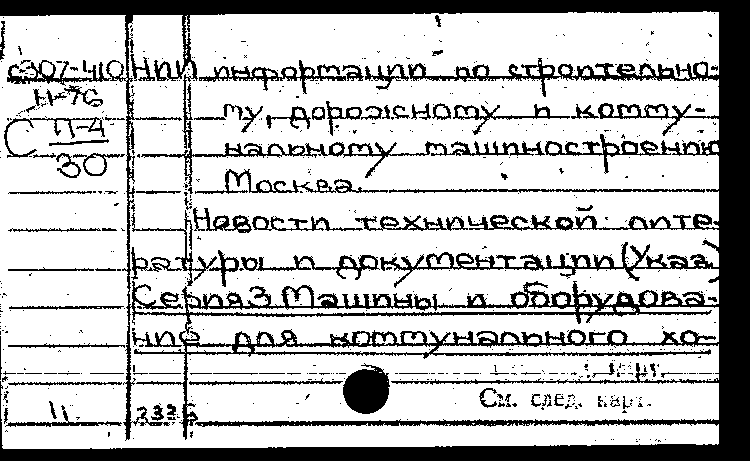 с307-410 НИИ информации по строительно-
Н-76 му, дорожному и комму-
С П-4 нальному машиностроению
30 Москва.
Новости технической лите-
ратуры и документации (Указ.)
Серия 3 Машины и оборудова-
ние для коммунального хо-
См. след. карт.
11. 2335